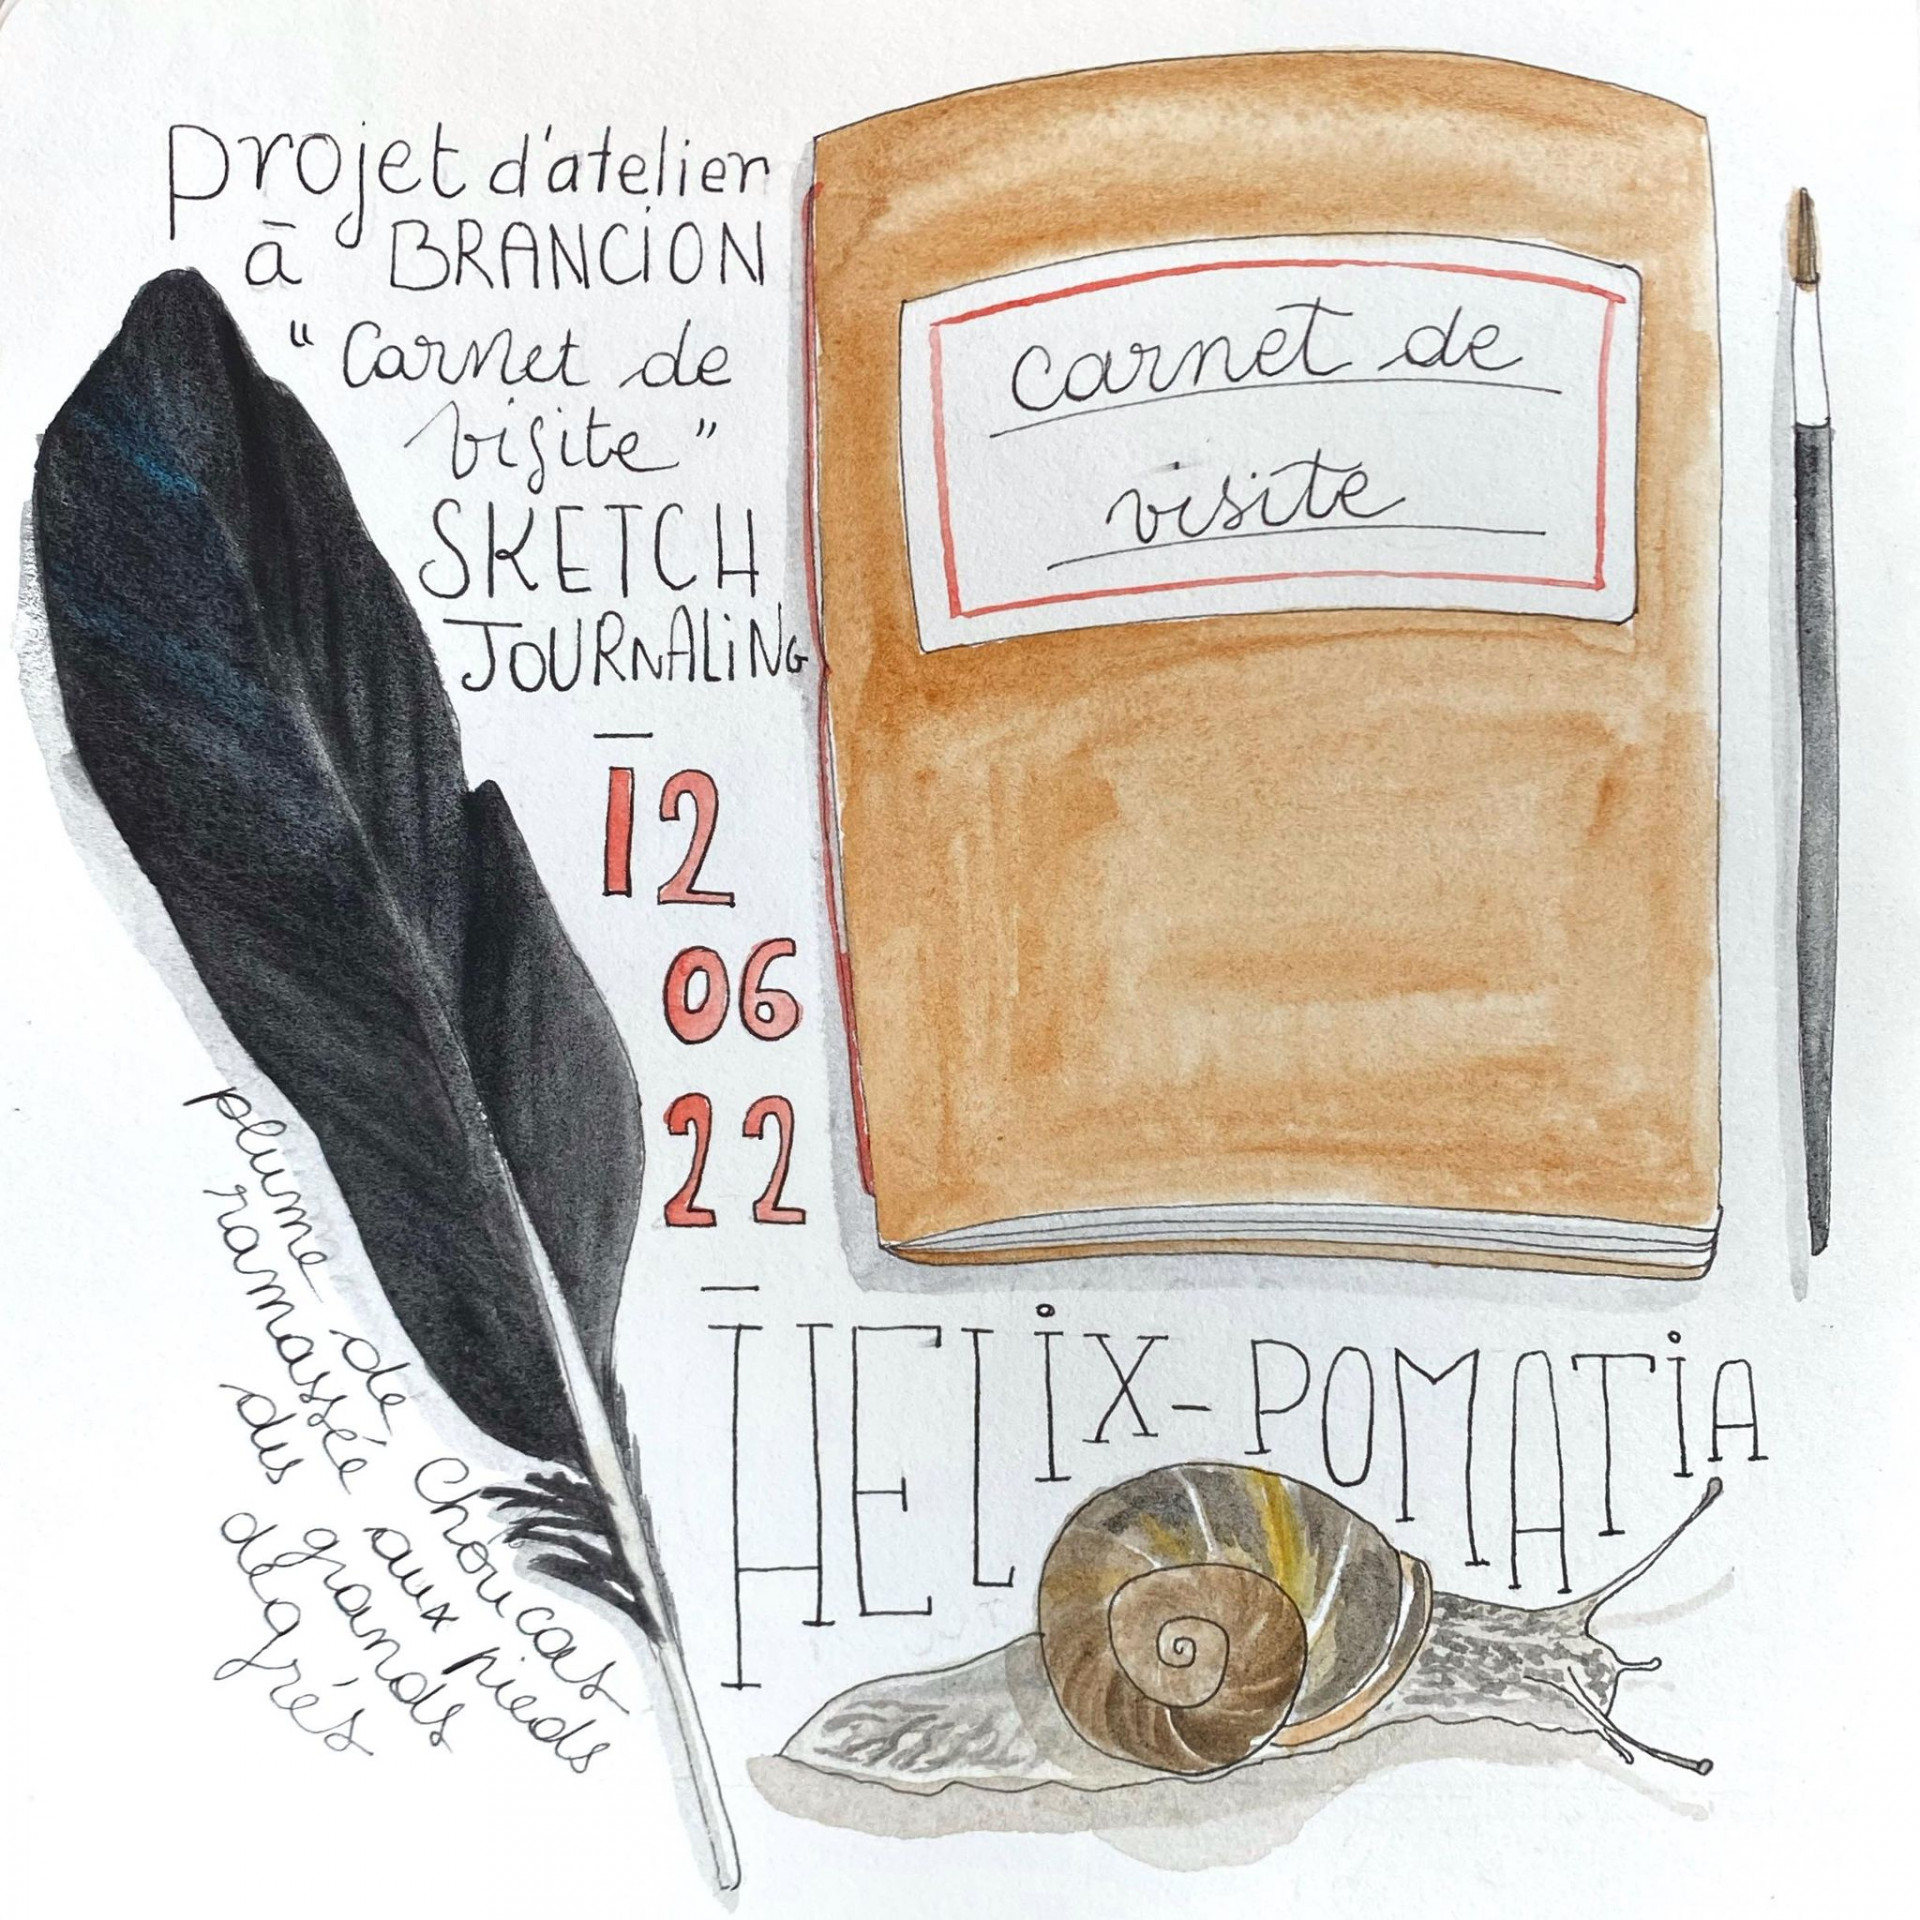 projet d'atelier
à BRANCION
"Carnet de
visite"
SKETCH
JOURNALING
12
06
22
carnet de
visite
plume de choucas
ramassée aux pieds
dus grands
dégrés
HELIX-POMATIA